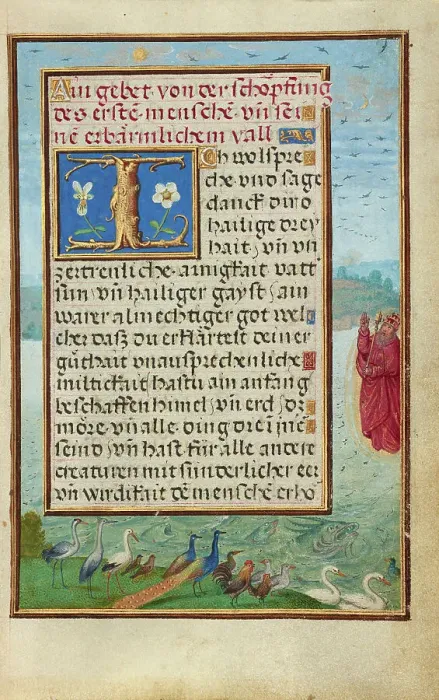 Ain gebet von der schöpfung
des erstē menschē vn̄ sei
nē erbärmlichem vall
Ich wolspre
che vnd sage
danck dir o
hailige drey
hait, vn̄ vn
zertrenliche ainigkait vatt
sun vn̄ hailiger gayst, ain
warer almechtiger got wel
cher dasz du erklärtest deiner
gůthait vnaussprechenliche
miltickait hastu ain anfang
beschaffen himel, vn̄ erd, dz
möre vn̄ alle ding dreinē
seind, vn̄ hast für alle andere
creaturen mit sünderlicher eer
vn̄ wirdikait dē menschē erho